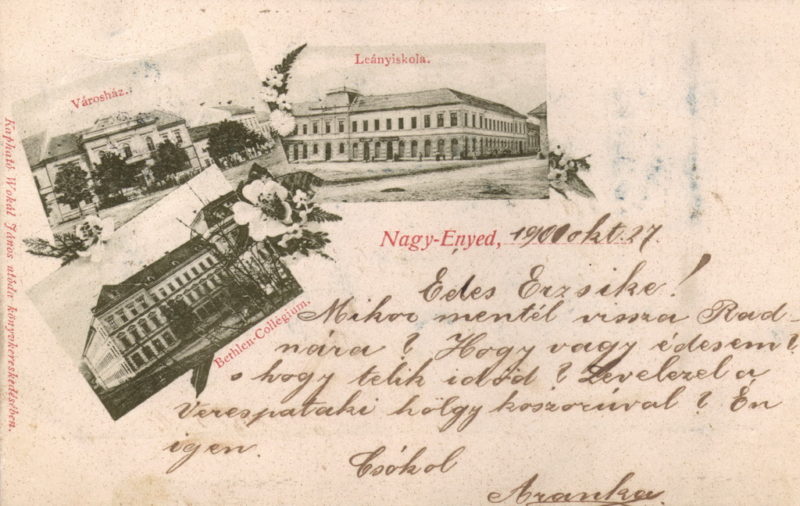 Leányiskola.
Városház.
Bethlen-Collegium.
Kapható Wokál János utóda könyvkereskedésében.
Nagy-Enyed, 1900 okt. 27.
Édes Erzsike!
Mikor mentél vissza Rad-
nára? Hogy vagy édesem?
s hogy telik időd? Levelezel a
Verespataki hölgy koszorúval? Én
igen.
Csókol
Aranka.